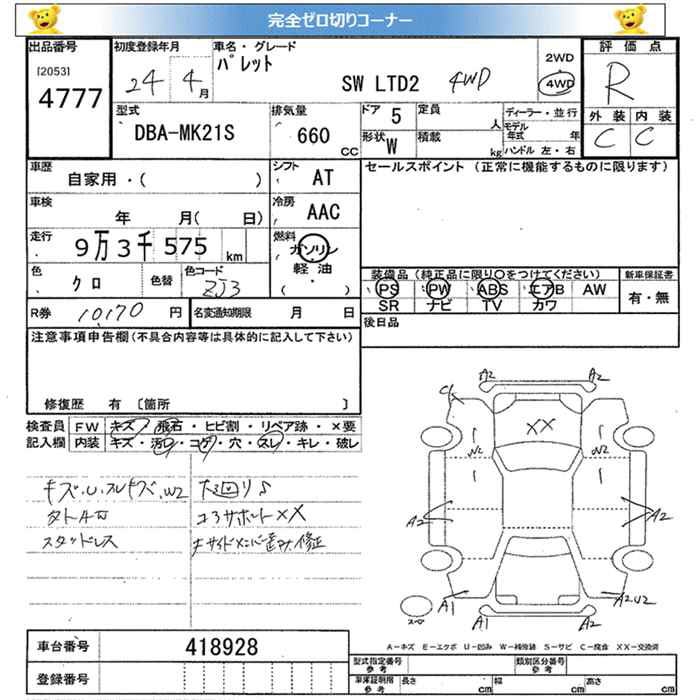 完全ゼロ切りコーナー
出品番号
[2053]
4777
初度登録年月
24 4月
車名・グレード
パレット
SW LTD2 4WD
2WD
4WD
評価点
R
外装 内装
C C
型式
DBA-MK21S
排気量
660 CC
ドア 5
形状 W
定員 人
積載 kg
ディーラー・並行
モデル年式 年
ハンドル 左・右
車歴
自家用・( )
シフト AT
セールスポイント (正常に機能するものに限ります)
車検
年 月( 日)
冷房 AAC
走行
9万3千575 km
燃料
ガソリン
軽油
( ・ )
色
クロ
色替
色コード
ZJ3
装備品 (純正品に限り○をつけてください)
新車保証書
PS PW ABS エアB AW
有・無
SR ナビ TV カワ
R券 10170 円
名変通知期限 月 日
後日品
注意事項申告欄(不具合内容等は具体的に記入して下さい)
修復歴 有 〔箇所 〕
検査員
記入欄
FW キズ・飛石・ヒビ割・リペア跡・×要
内装 キズ・汚れ・コゲ・穴・スレ・キレ・破レ
キズ.U.スレキズ.W2
タイヤ4
スタッドレス
下廻りS
コアサポートXX
キサイドメンバー歪み修正
C1
A2
A2
XX
W2
W2
A2
A2
A1
A1
A2
A2U2
スペ
A-キズ E-エクボ U-凹み W-補修跡 S-サビ C-腐食 XX-交換済
車台番号
418928
登録番号
型式指定番号
参考
類別区分番号
参考
車庫証明用
参考
長さ cm
幅 cm
高さ cm